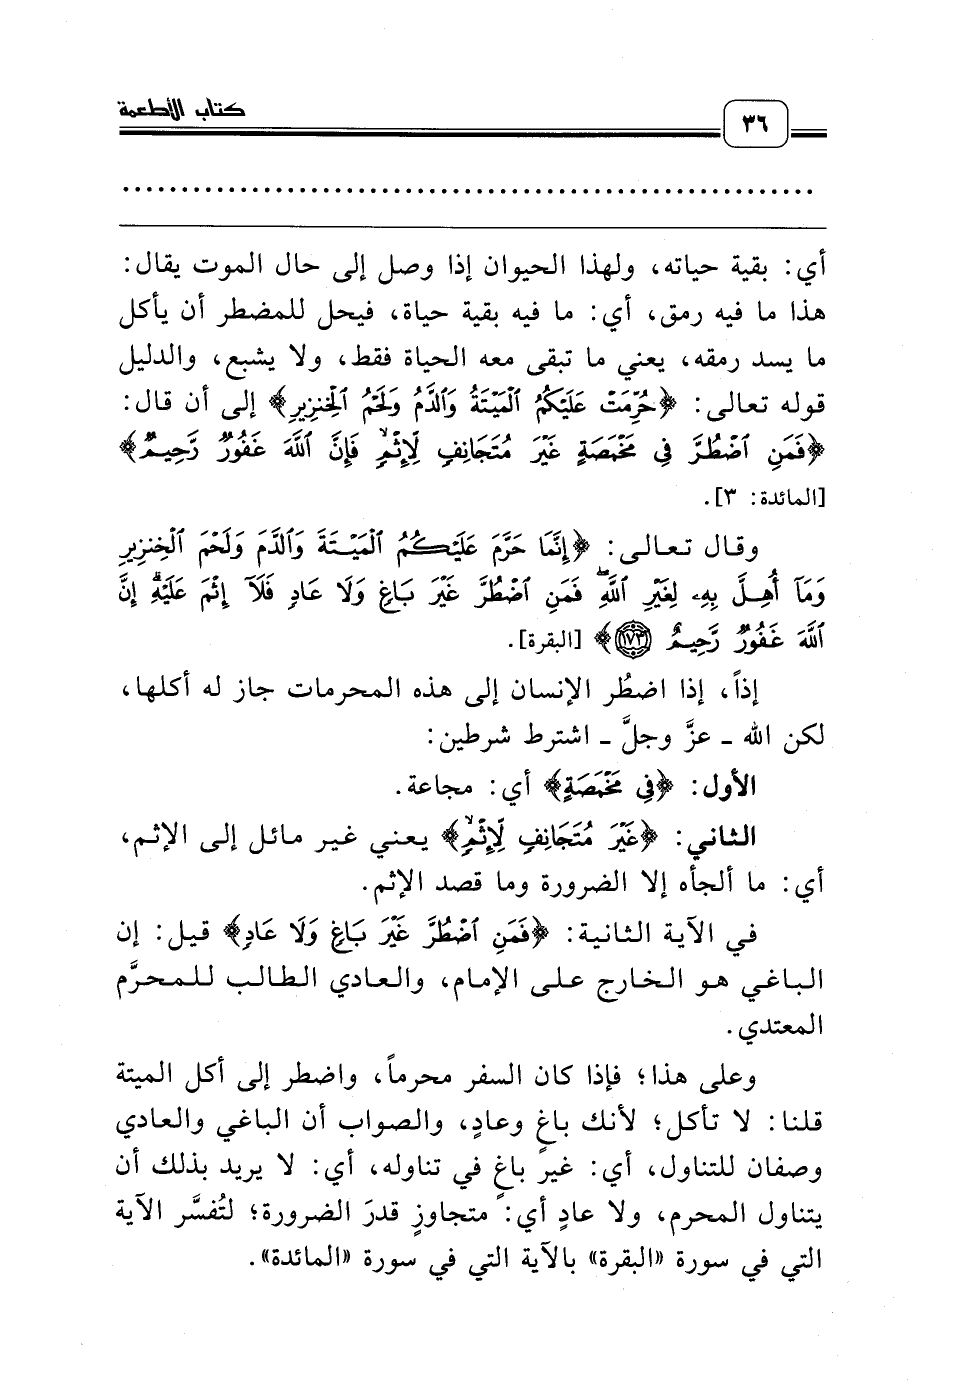 كتاب الأطعمة
٣٦
أي: بقية حياته، ولهذا الحيوان إذا وصل إلى حال الموت يقال:
هذا ما فيه رمق، أي: ما فيه بقية حياة، فيحل للمضطر أن يأكل
ما يسد رمقه، يعني ما تبقى معه الحياة فقط، ولا يشبع، والدليل
قوله تعالى: ﴿حُرِّمَتْ عَلَيْكُمُ ٱلْمَيْتَةُ وَٱلدَّمُ وَلَحْمُ ٱلْخِنزِيرِ﴾ إلى أن قال:
﴿فَمَنِ ٱضْطُرَّ فِي مَخْمَصَةٍ غَيْرَ مُتَجَانِفٍ لِّإِثْمٍۙ فَإِنَّ ٱللَّهَ غَفُورٌ رَّحِيمٌ﴾
[المائدة: ٣].
وقال تعالى: ﴿إِنَّمَا حَرَّمَ عَلَيْكُمُ ٱلْمَيْتَةَ وَٱلدَّمَ وَلَحْمَ ٱلْخِنزِيرِ
وَمَآ أُهِلَّ بِهِۦ لِغَيْرِ ٱللَّهِۖ فَمَنِ ٱضْطُرَّ غَيْرَ بَاغٍ وَلَا عَادٍ فَلَآ إِثْمَ عَلَيْهِۚ إِنَّ
ٱللَّهَ غَفُورٌ رَّحِيمٌ ١٧٣﴾ [البقرة].
إذاً، إذا اضطُر الإنسان إلى هذه المحرمات جاز له أكلها،
لكن الله ـ عزَّ وجلَّ ـ اشترط شرطين:
الأول: ﴿فِي مَخْمَصَةٍ﴾ أي: مجاعة.
الثاني: ﴿غَيْرَ مُتَجَانِفٍ لِّإِثْمٍۙ﴾ يعني غير مائل إلى الإثم،
أي: ما ألجأه إلا الضرورة وما قصد الإثم.
في الآية الثانية: ﴿فَمَنِ ٱضْطُرَّ غَيْرَ بَاغٍ وَلَا عَادٍ﴾ قيل: إن
الباغي هو الخارج على الإمام، والعادي الطالب للمحرَّم
المعتدي.
وعلى هذا؛ فإذا كان السفر محرماً، واضطر إلى أكل الميتة
قلنا: لا تأكل؛ لأنك باغٍ وعادٍ، والصواب أن الباغي والعادي
وصفان للتناول، أي: غير باغٍ في تناوله، أي: لا يريد بذلك أن
يتناول المحرم، ولا عادٍ أي: متجاوزٍ قدرَ الضرورة؛ لتُفسَّر الآية
التي في سورة «البقرة» بالآية التي في سورة «المائدة».